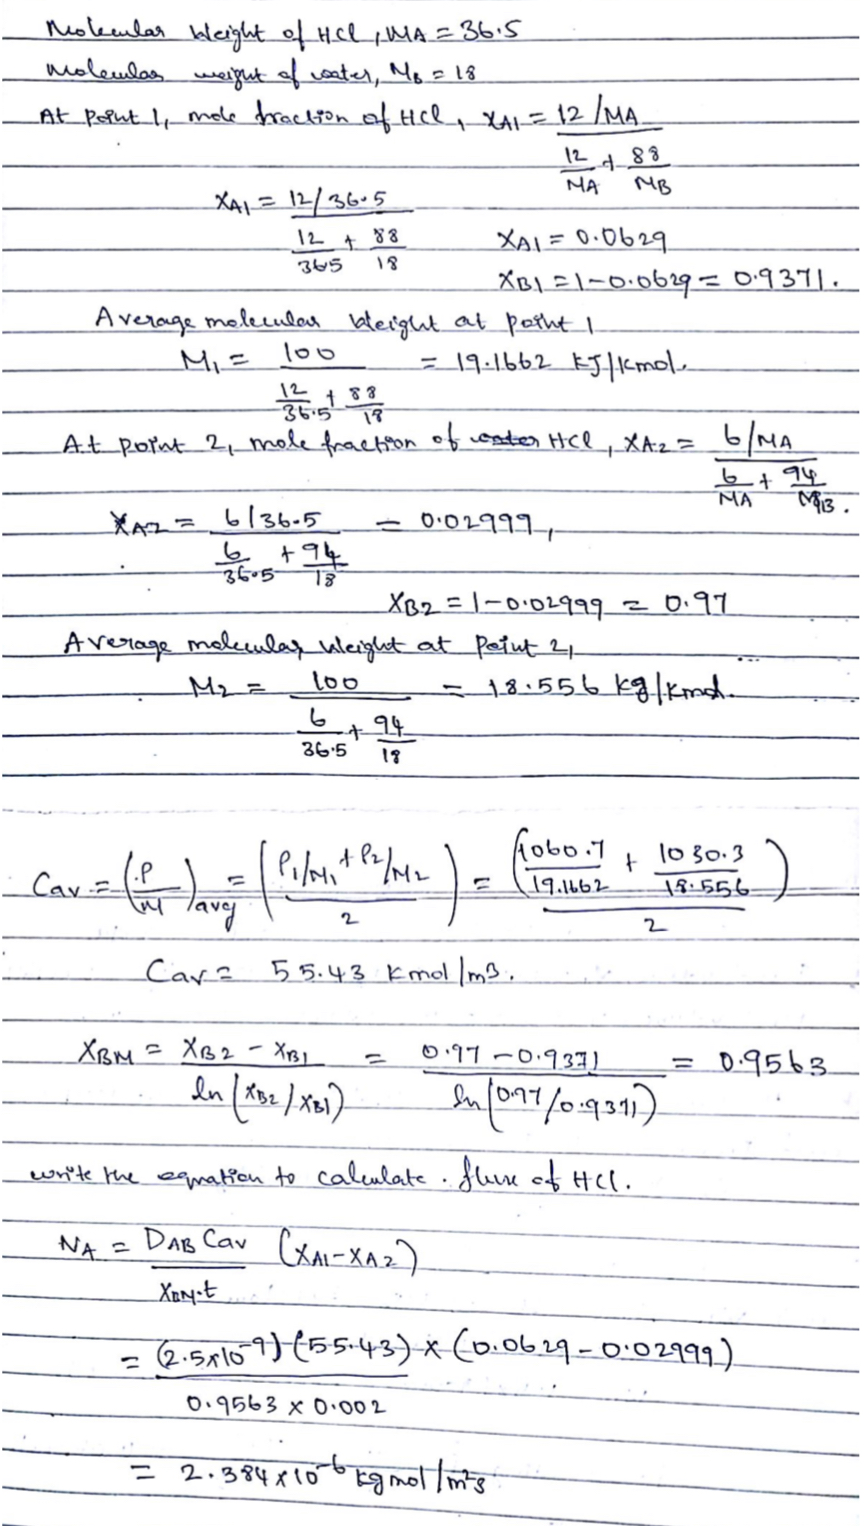 Molecular Weight of HCl, MA = 36.5
Molecular weight of water, MB = 18
At Point 1, mole fraction of HCl, XA1 = (12/MA) / (12/MA + 88/MB)
XA1 = (12/36.5) / (12/365 + 88/18)
XA1 = 0.0629
XB1 = 1-0.0629 = 0.9371.
Average molecular Weight at point 1
M1 = 100 / (12/36.5 + 88/18) = 19.1662 KJ/Kmol.
At point 2, mole fraction of HCl, XA2 = (6/MA) / (6/MA + 94/MB).
XA2 = (6/36.5) / (6/36.5 + 94/18) = 0.02999,
XB2 = 1-0.02999 = 0.97
Average molecular Weight at Point 2,
M2 = 100 / (6/36.5 + 94/18) = 18.556 kg/kmol.
Cav = (P/M)avg = ((P1/M1 + P2/M2) / 2) = ((1060.7/19.1662 + 1030.3/18.556) / 2)
Cav = 55.43 Kmol/m3.
XBM = (XB2 - XB1) / ln(XB2/XB1) = (0.97 - 0.9371) / ln(0.97/0.9371) = 0.9563
write the equation to calculate. flux of HCl.
NA = (DAB Cav / XBM.t) (XA1-XA2)
= ((2.5x10^-9) (55.43) / (0.9563 x 0.002)) x (0.0629 - 0.02999)
= 2.384 x 10^-6 kgmol/m²s